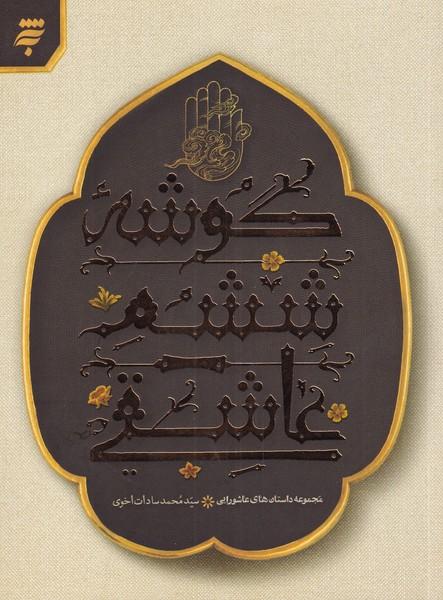 به نشر
گوشهٔ
ششم
عاشقی
مجموعه داستان‌های عاشورایی ❋ سیّد محمد سادات اخوی